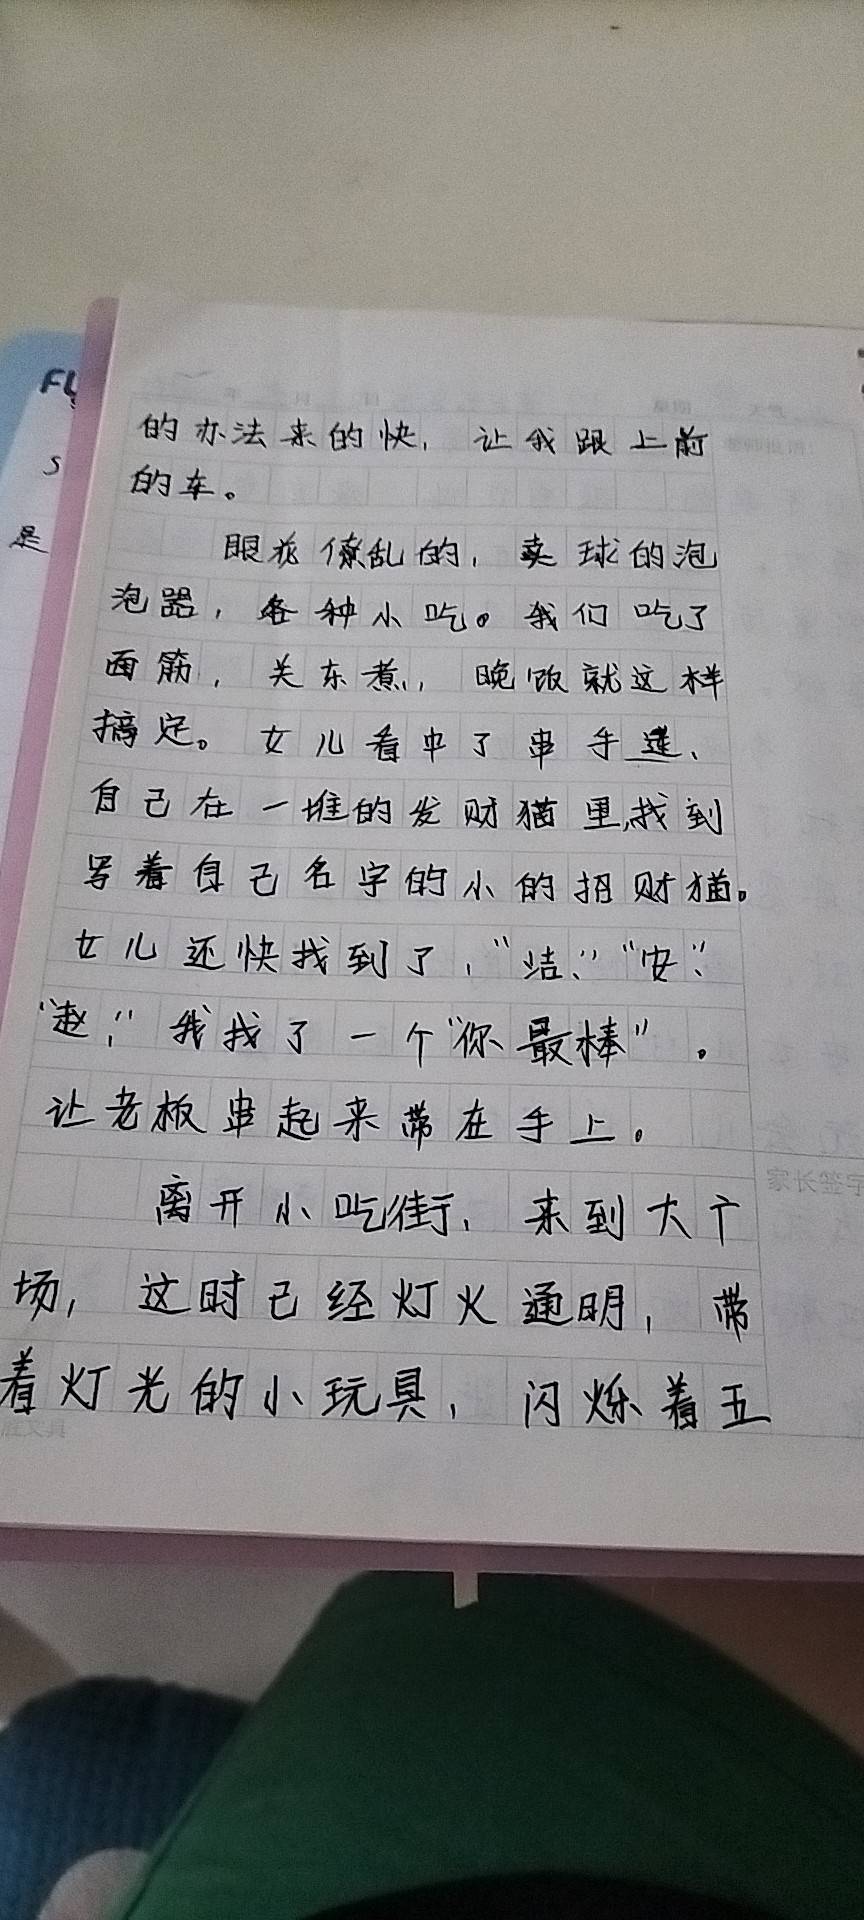 的办法来的快，让我跟上前
的车。
眼花僚乱的，卖球的泡
泡器，各种小吃。我们吃了
面筋，关东煮，晚饭就这样
搞定。女儿看中了串手链、
自己在一堆的发财猫里，找到
写着自己名字的小的招财猫。
女儿还快找到了，“洁”、“安”、
“赵”，我找了一个“你最棒”。
让老板串起来带在手上。
离开小吃街，来到大广
场，这时已经灯火通明，带
着灯光的小玩具，闪烁着五
FL
S
是
家长签字